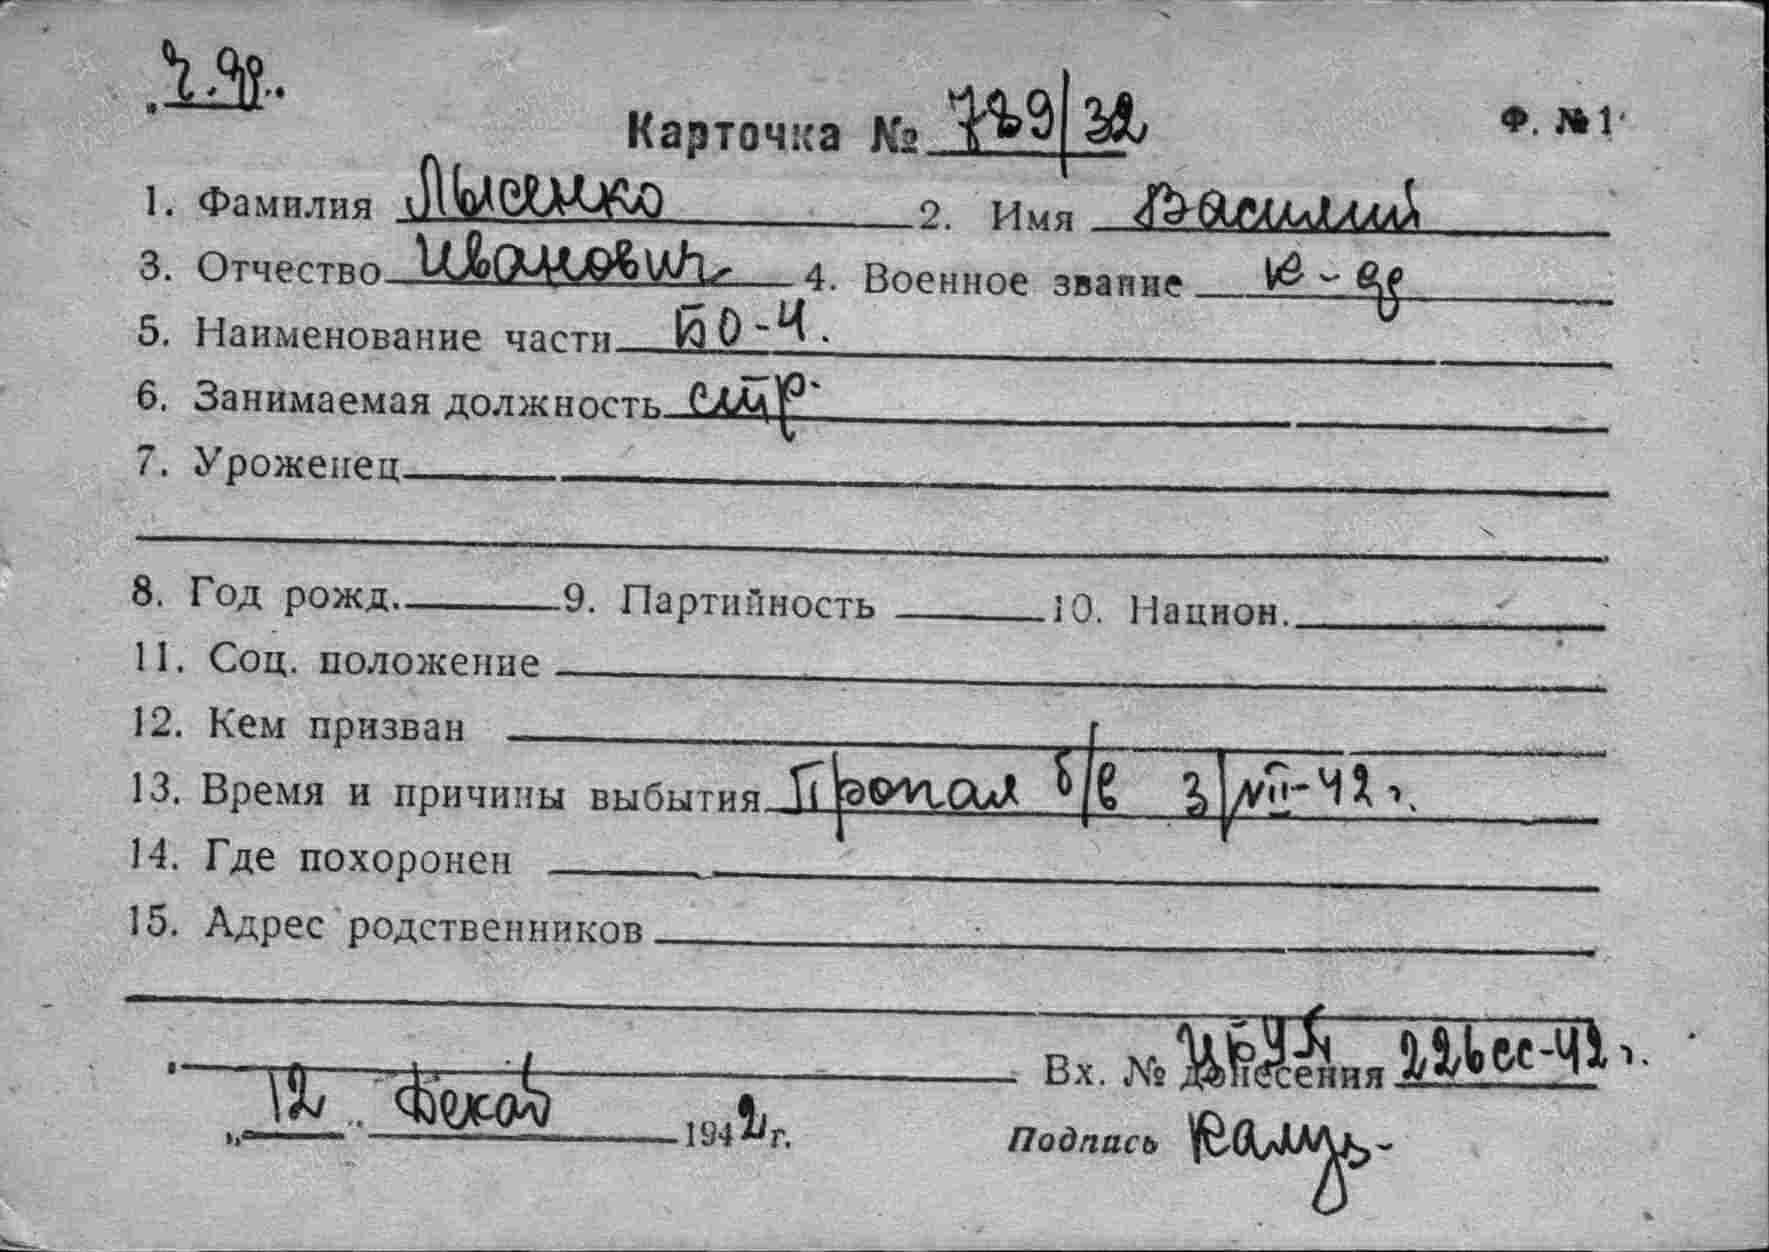 ч.ф..
Карточка № 789/32 Ф. № 1
1. Фамилия Лысенко 2. Имя Василий
3. Отчество Иванович 4. Военное звание к-ф
5. Наименование части БО-Ч.
6. Занимаемая должность стр.
7. Уроженец
8. Год рожд. 9. Партийность 10. Национ.
11. Соц. положение
12. Кем призван
13. Время и причины выбытия Пропал б/в 3/VII-42 г.
14. Где похоронен
15. Адрес родственников
Вх. № донесения 226сс-42 г.
„12" Декаб 1942 г. Подпись